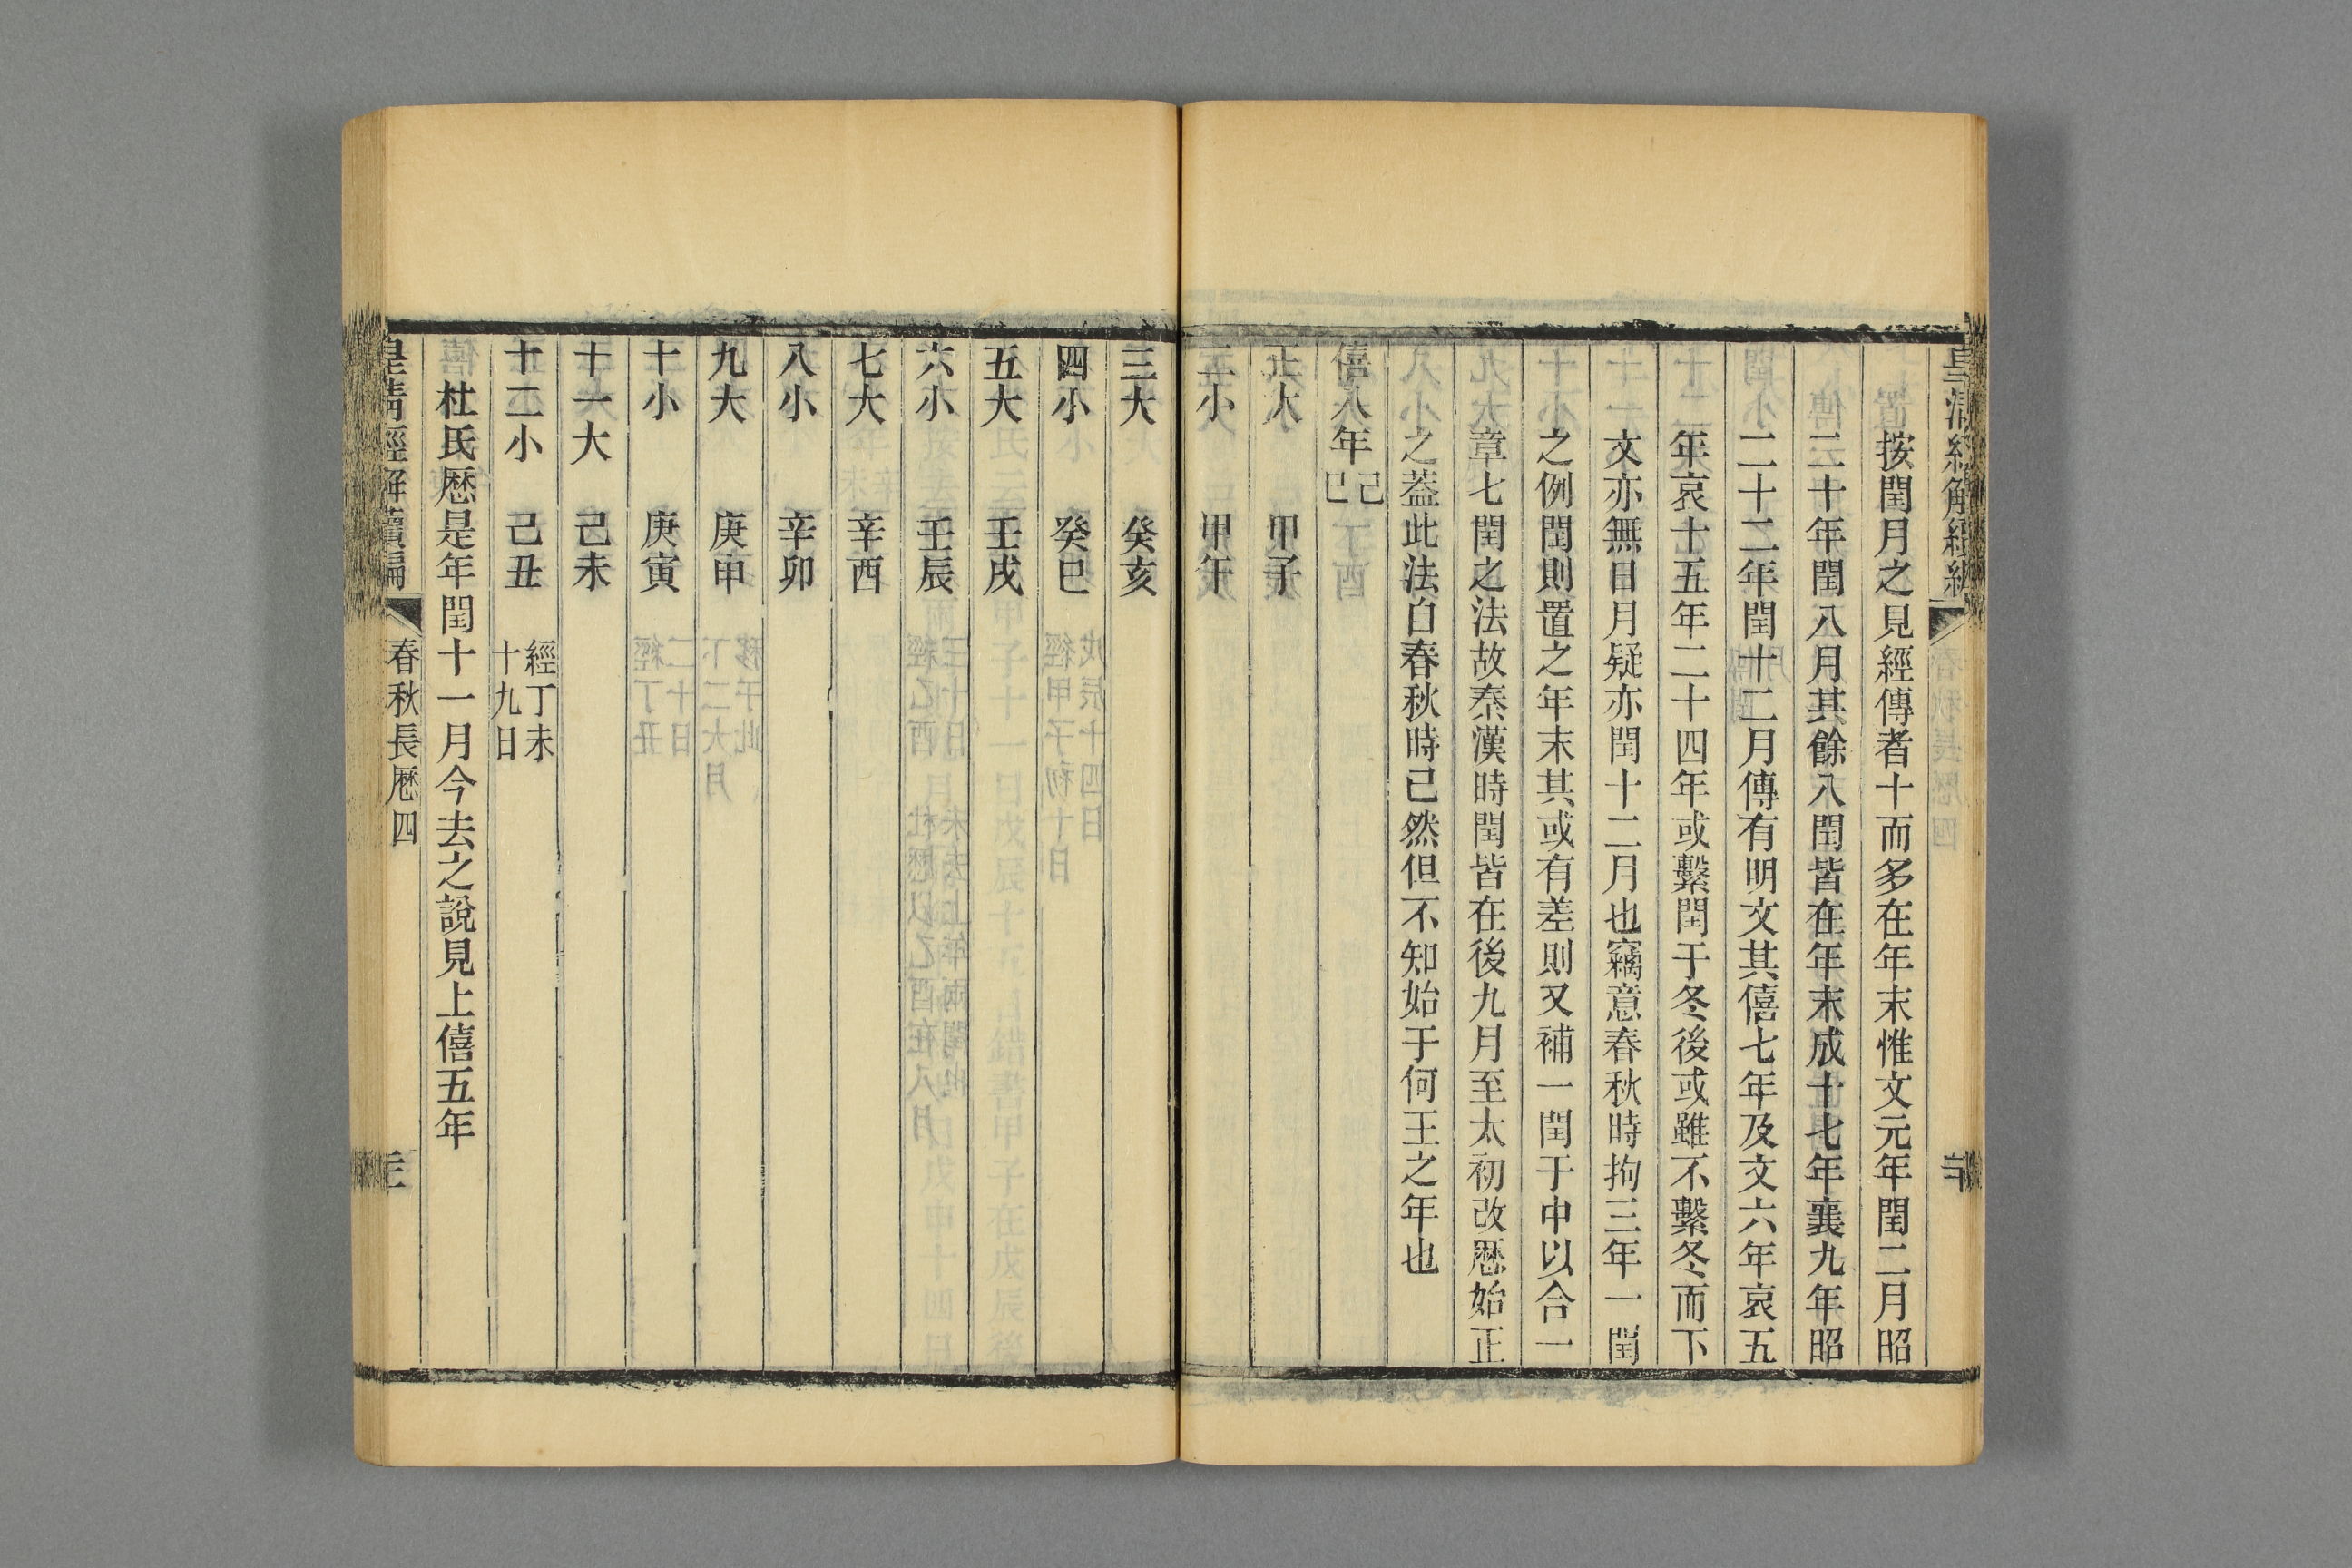 按閏月之見經傳者十而多在年末惟文元年閏二月昭
二十年閏八月其餘八閏皆在年末成十七年襄九年昭
二十二年閏十二月傳有明文其僖七年及文六年哀五
年哀十五年二十四年或繫閏于冬後或雖不繫冬而下
文亦無日月疑亦閏十二月也竊意春秋時拘三年一閏
之例閏則置之年末其或有差則又補一閏于中以合一
章七閏之法故秦漢時閏皆在後九月至太初改厯始正
之葢此法自春秋時已然但不知始于何王之年也
僖八年己巳
正大 甲子
二小 甲午
三大 癸亥
四小 癸巳
五大 壬戌
六小 壬辰
七大 辛酉
八小 辛卯
九大 庚申
十小 庚寅
十一大 己未
十二小 己丑 經丁未十九日
杜氏厯是年閏十一月今去之說見上僖五年
皇清經解續編 春秋長厯四